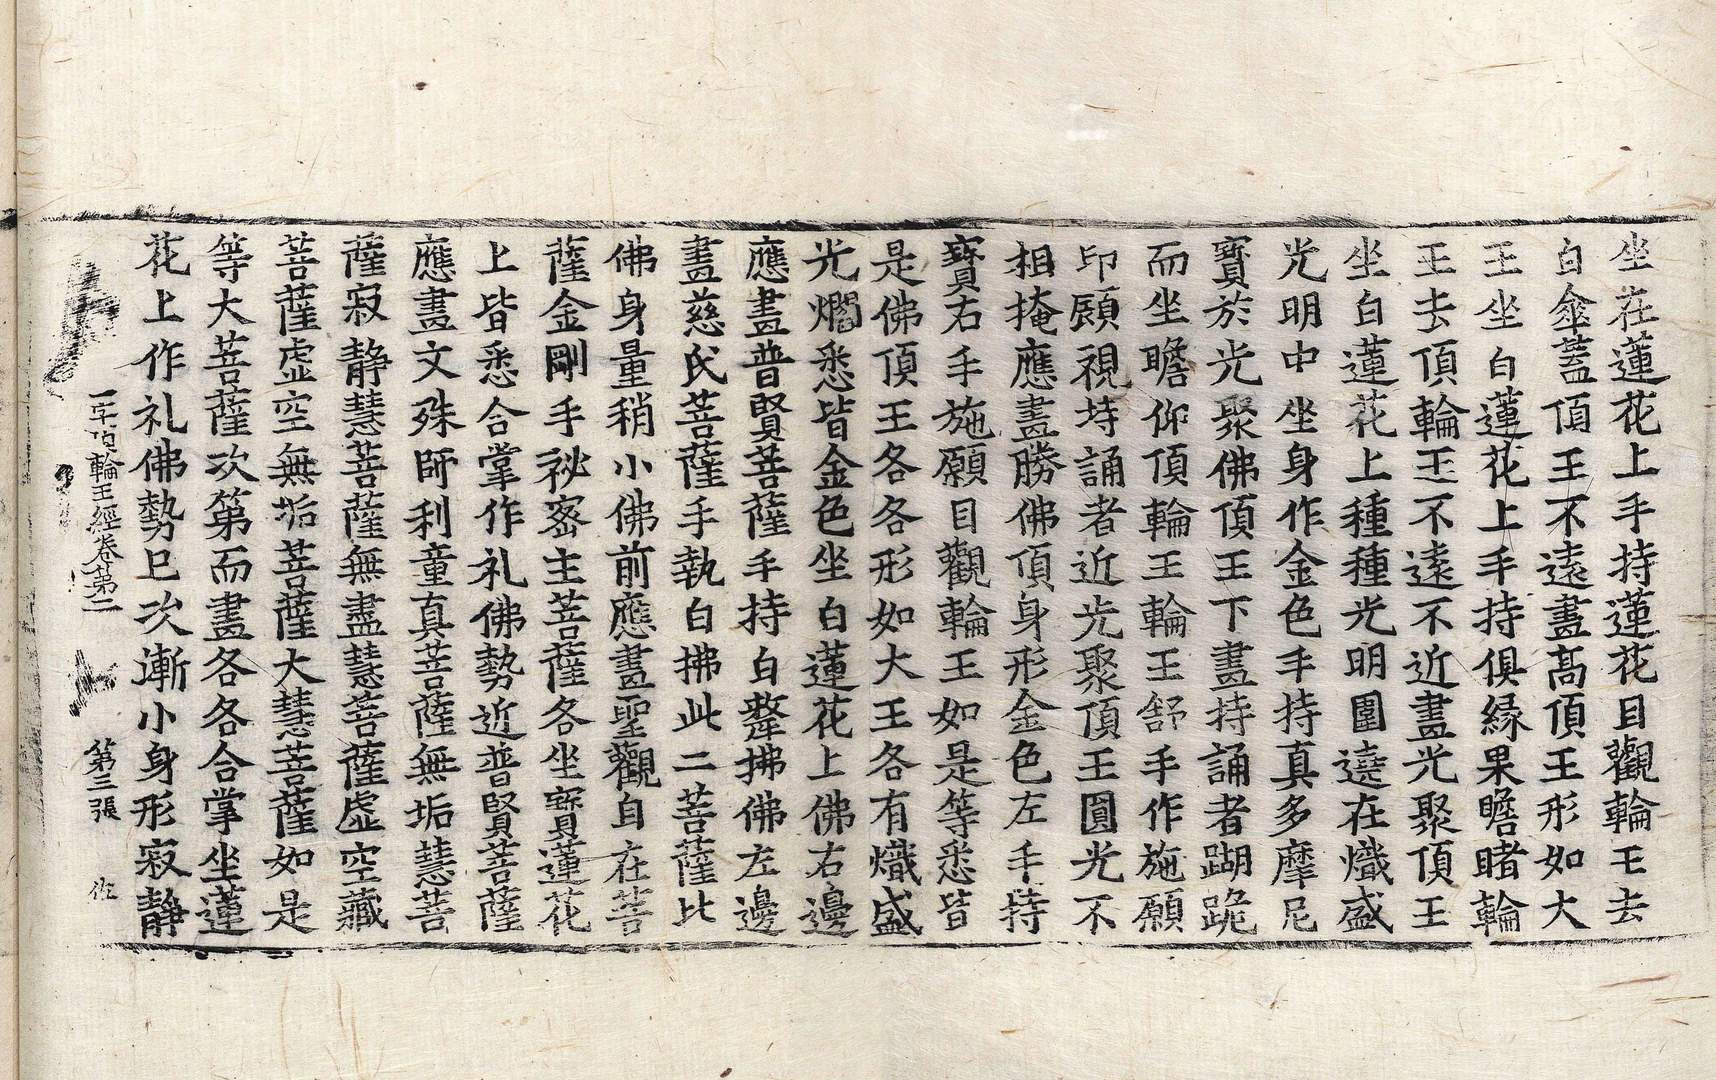 坐在蓮花上手持蓮花目觀輪王去
白傘蓋頂王不遠畫高頂王形如大
王坐白蓮花上手持俱緣果瞻睹輪
王去頂輪王不遠不近畫光聚頂王
坐白蓮花上種種光明圍遶在熾盛
光明中坐身作金色手持真多摩尼
寶於光聚佛頂王下畫持誦者蹋跪
而坐瞻仰頂輪王輪王舒手作施願
印顧視持誦者近光聚頂王圓光不
相掩應畫勝佛頂身形金色左手持
寶右手施願目觀輪王如是等悉皆
是佛頂王各各形如大王各有熾盛
光爓悉皆金色坐白蓮花上佛右邊
應畫普賢菩薩手持白氂拂佛左邊
畫慈氏菩薩手執白拂此二菩薩比
佛身量稍小佛前應畫聖觀自在菩
薩金剛手祕密主菩薩各坐寶蓮花
上皆悉合掌作礼佛勢近普賢菩薩
應畫文殊師利童真菩薩無垢慧菩
薩寂靜慧菩薩無盡慧菩薩虛空藏
菩薩虛空無垢菩薩大慧菩薩如是
等大菩薩次第而畫各各合掌坐蓮
花上作礼佛勢已次漸小身形寂靜
一字頂輪王經卷第二 第三張 作